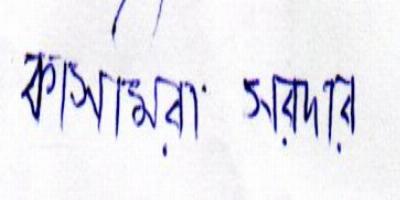 কাসামরা সরদার